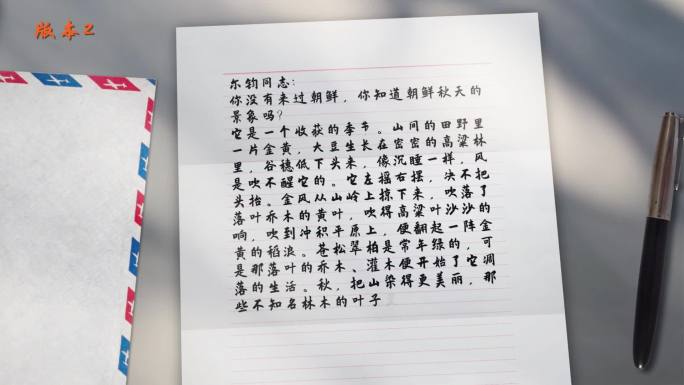 版本2
尔钧同志：
你没有来过朝鲜，你知道朝鲜秋天的
景象吗？
它是一个收获的季节。山间的田野里
一片金黄，大豆生长在密密的高粱林
里，谷穗低下头来，像沉睡一样，风
是吹不醒它的。它左摇右摆，决不把
头抬。金风从山岭上掠下来，吹落了
落叶乔木的黄叶，吹得高粱叶沙沙的
响，吹到冲积平原上，便翻起一阵金
黄的稻浪。苍松翠柏是常年绿的，可
是那落叶的乔木、灌木便开始了它凋
落的生活。秋，把山染得更美丽，那
些不知名林木的叶子